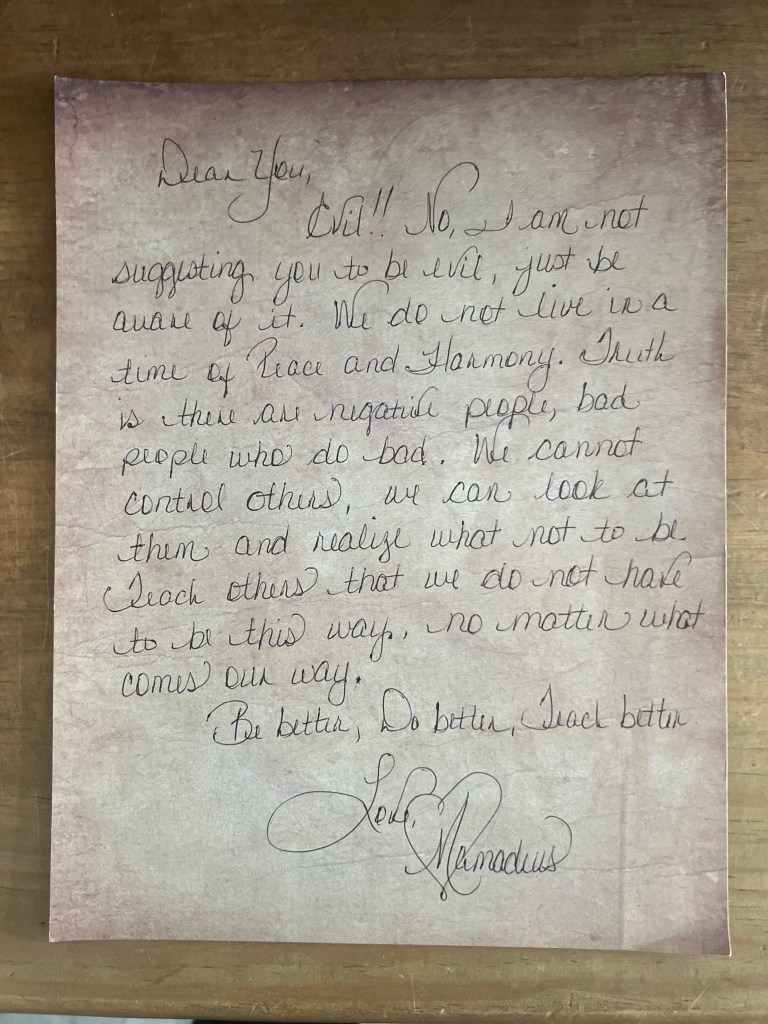 Dear You,
Evil!! No, I am not
suggesting you to be evil, just be
aware of it. We do not live in a
time of Peace and Harmony. Truth
is there are negative people, bad
people who do bad. We cannot
control others, we can look at
them and realize what not to be.
Teach others that we do not have
to be this way, no matter what
comes our way.
Be better, Do better, Teach better
Love,
Mamadeus